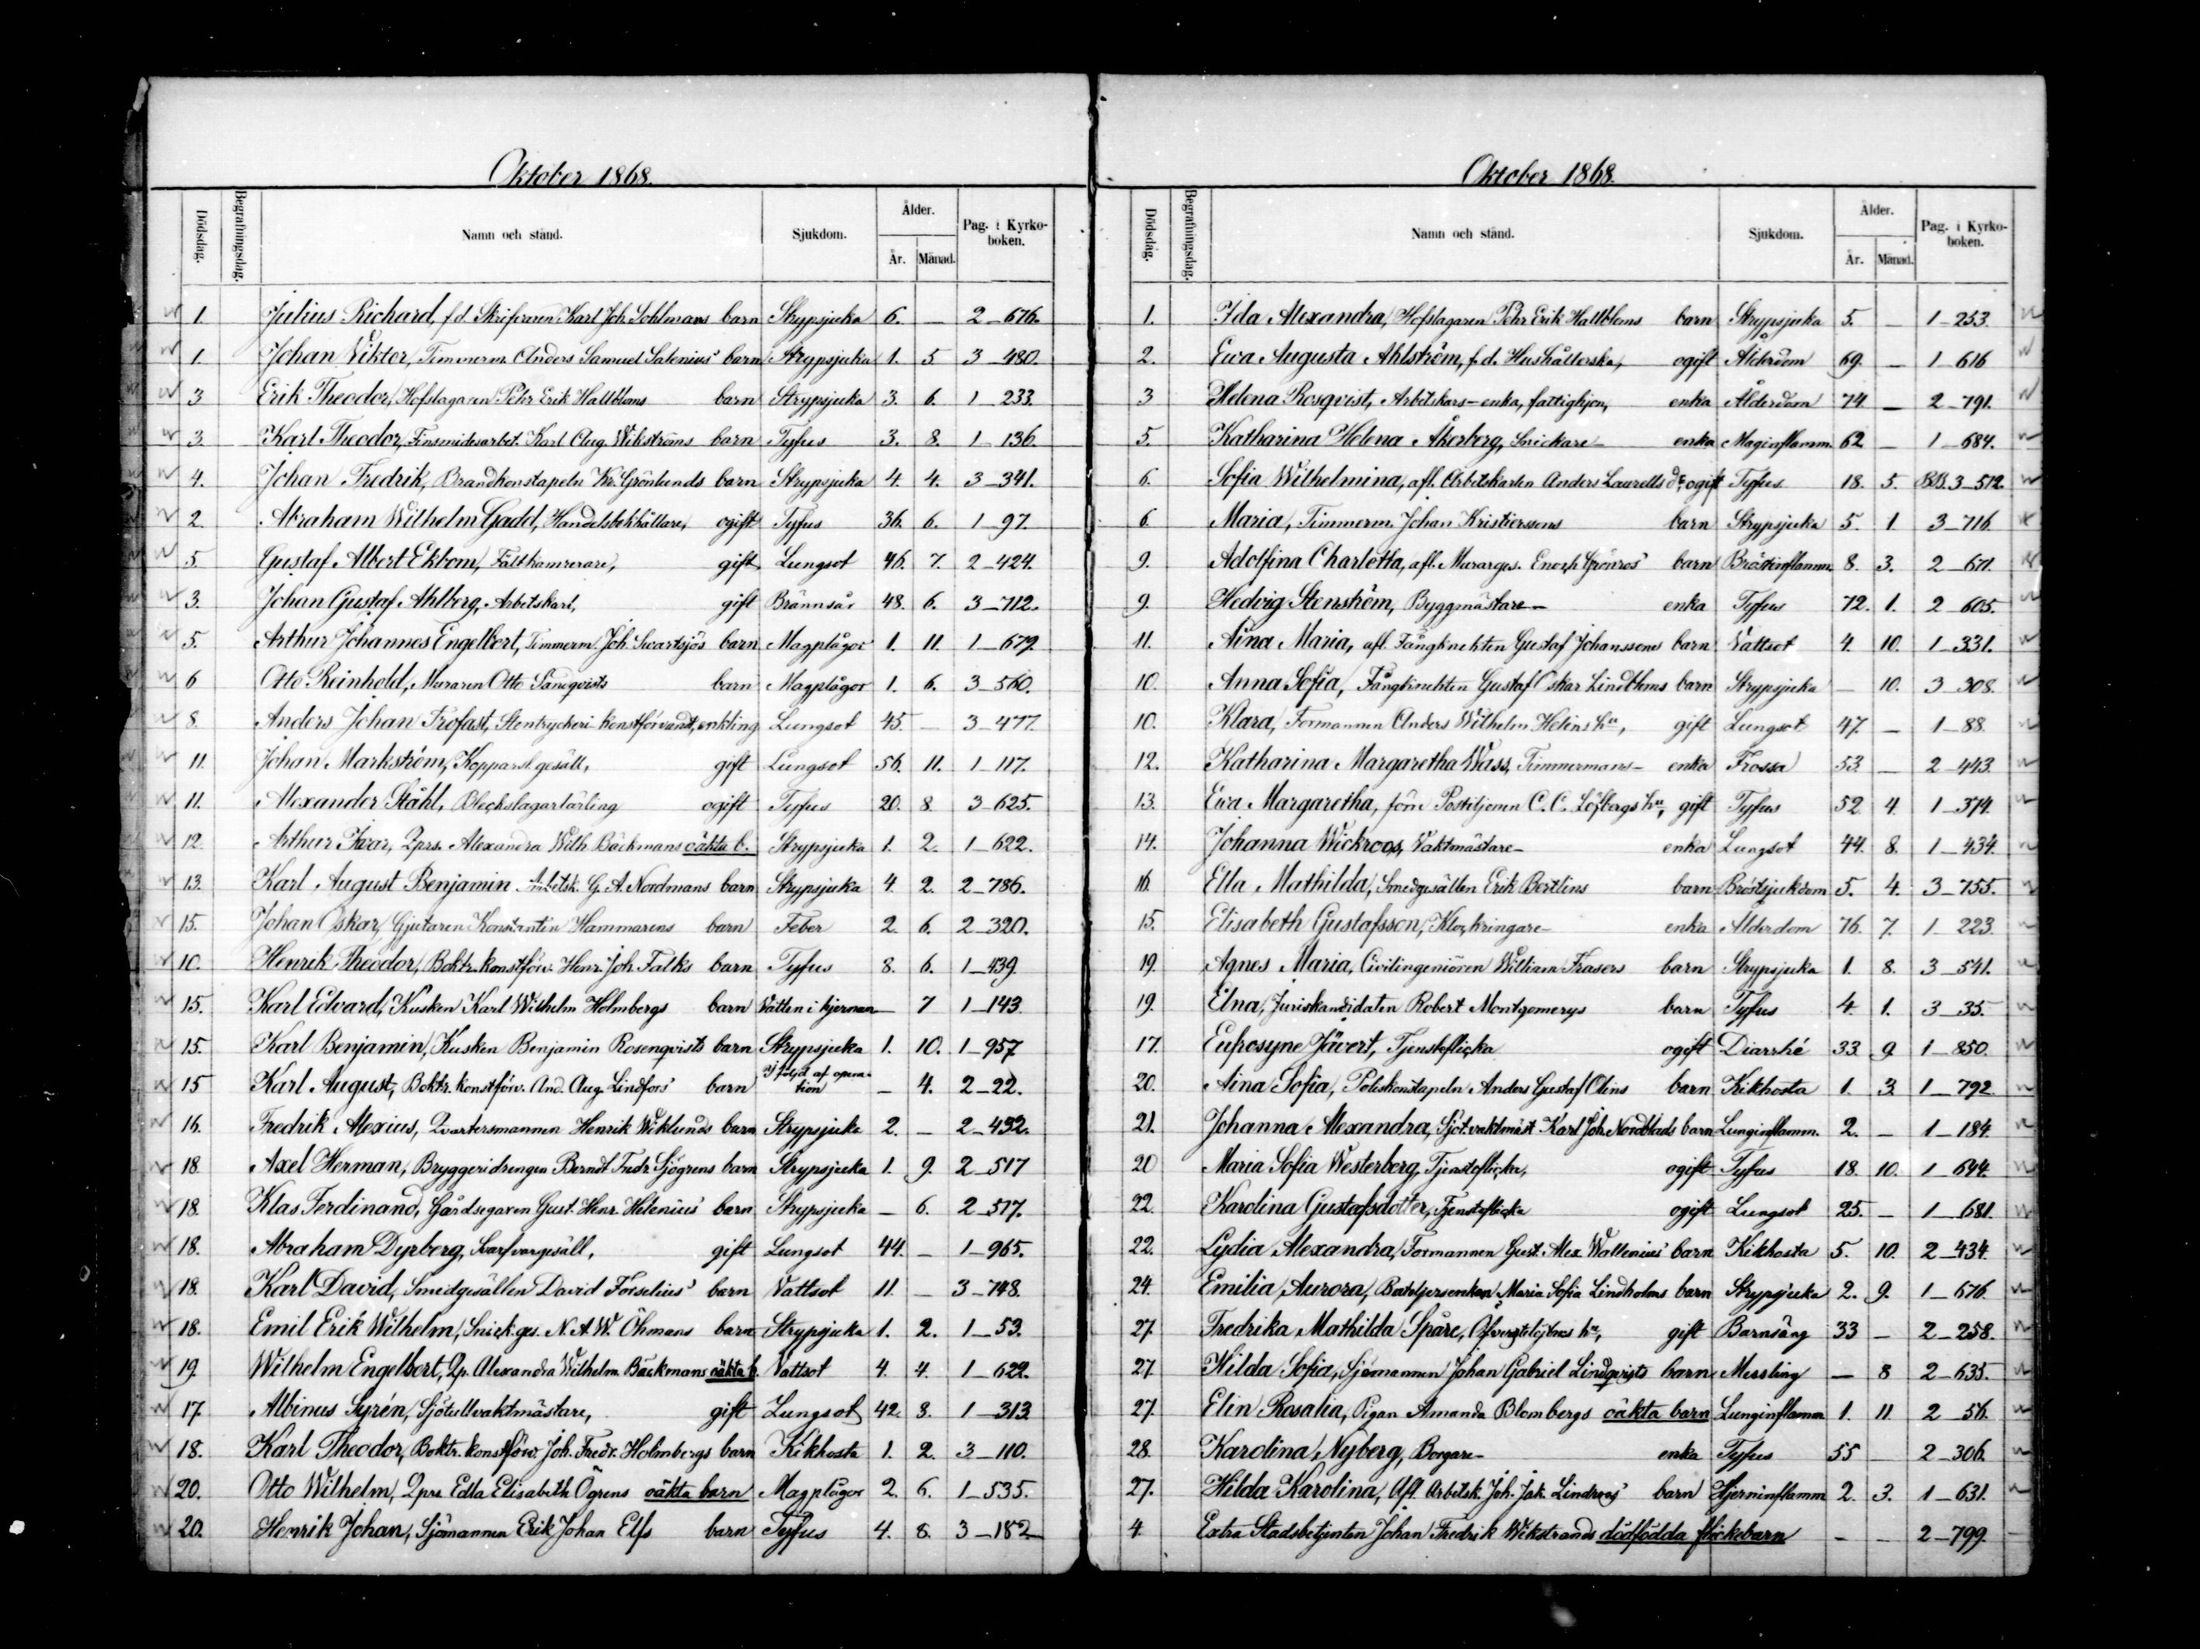 Oktober 1868.
Dödsdag. Begrafningsdag. Namn och stånd. Sjukdom. Ålder. År. Månad. Pag. i Kyrkoboken.
1. Julius Richard, f.d. Skrifvaren Karl Joh. Sohlmans barn Strypsjuka 6. — 2_676.
1. Johan Viktor, Timmerm. Anders Samuel Salenius' barn Strypsjuka 1. 5 3_480.
3 Erik Theodor, Hofslagaren Pehr Erik Hallbloms barn Strypsjuka 3. 6. 1_233.
3. Karl Theodor, Finsmidesarbet. Karl Aug. Wikströms barn Tyfus 3. 8. 1_136.
4. Johan Fredrik, Brandkonstapeln Kr. Grönlunds barn Strypsjuka 4. 4. 3_341.
2. Abraham Wilhelm Gadd, Handelsbokhållare, ogift Tyfus 36. 6. 1_97.
5. Gustaf Albert Ekbom, Fältkamrerare, gift Lungsot 46. 7. 2_424.
3. Johan Gustaf Ahlberg, Arbetskarl, gift Brännsår 48. 6. 3_712.
5. Arthur Johannes Engelbert, Timmerm. Joh. Swartsjös barn Magplågor 1. 11. 1_679.
6 Otto Reinhold, Muraren Otto Sandqvists barn Magplågor 1. 6. 3_560.
8. Anders Johan Trofast, Stentryckeri-konstförvandt, enkling Lungsot 45. — 3_477.
11. Johan Markström, Kopparsl. gesäll, gift Lungsot 56. 11. 1_117.
11. Alexander Ståhl, Bleckslagarlärling ogift Tyfus 20. 8. 3_625.
12. Arthur Ivar, Qprs. Alexandra Wilh. Bäckmans oäkta b. Strypsjuka 1. 2. 1_622.
13. Karl August Benjamin Arbetsk. G. A. Nordmans barn Strypsjuka 4. 2. 2_786.
15. Johan Oskar, Gjutaren Konstantin Hammarens barn Feber 2. 6. 2_320.
10. Henrik Theodor, Boktr. konstförv. Henr. Joh. Falks barn Tyfus 8. 6. 1_439.
15. Karl Edvard, Kusken Karl Wilhelm Holmbergs barn Vatten i hjernan — 7 1_143.
15. Karl Benjamin, Kusken Benjamin Rosenqvists barn Strypsjuka 1. 10. 1_957
15 Karl August, Boktr. konstförv. And. Aug. Lindfors' barn I följd af operation — 4. 2_22.
16. Fredrik Alexius, Qvartersmannen Henrik Wiklunds barn Strypsjuka 2. — 2_432.
18. Axel Herman, Bryggeridrengen Berndt Fredr. Sjögrens barn Strypsjuka 1. 9. 2_517
18. Klas Ferdinand, Gårdsegaren Gust. Henr. Helenius' barn Strypsjuka — 6. 2_517.
18. Abraham Dyrberg, Svarfvargesäll, gift Lungsot 44. — 1_965.
18. Karl David, Smidgesällen David Forselius' barn Vattsot 11. — 3_748.
18. Emil Erik Wilhelm, Snick. ges. N. A. W. Öhmans barn Strypsjuka 1. 2. 1_53.
19. Wilhelm Engelbert, Qp. Alexandra Wilhelm. Bäckmans oäkta b. Vattsot 4. 4. 1_622.
17. Albinus Syrén, Sjötullvaktmästare, gift Lungsot 42. 8. 1_313
18. Karl Theodor, Boktr. konstförv. Joh. Fredr. Holmbergs barn Kikhosta 1. 2. 3_110.
20. Otto Wilhelm, Qprs. Edla Elisabeth Ögrens oäkta barn Magplågor 2. 6. 1_535.
20. Henrik Johan, Sjömannen Erik Johan Elfs barn Tyfus 4. 8. 3_182
Oktober 1868.
Dödsdag. Begrafningsdag. Namn och stånd. Sjukdom. Ålder. År. Månad. Pag. i Kyrkoboken.
1. Ida Alexandra, Hofslagaren Pehr Erik Hallbloms barn Strypsjuka 5. — 1_253.
2. Ewa Augusta Ahlström, f.d. Hushållerska, ogift Ålderdom 69. — 1_616
3 Helena Rosqvist, Arbetskars-enka, fattighjon, enka Ålderdom 74 — 2_791.
5. Katharina Helena Åkerberg, Snickare- enka Maginflamm. 62 — 1_684.
6. Sofia Wilhelmina, afl. Arbetskarlen Anders Laurells dr. ogift Tyfus 18. 5. BB. 3_512.
6. Maria, Timmerm. Johan Kristierssons barn Strypsjuka 5. 1. 3_716.
9. Adolfina Charlotta, afl. Murarges. Enoch Grönros' barn Bröstinflamm. 8. 3. 2_671.
9. Hedvig Stenström, Byggmästare- enka Tyfus 72. 1. 2_605.
11. Aina Maria, afl. Fångknekten Gustaf Johanssons barn Vattsot 4. 10. 1_331.
10. Anna Sofia, Fångknekten Gustaf Oskar Lindbloms barn Strypsjuka — 10. 3_308.
10. Klara, Formannen Anders Wilhelm Helins hu, gift Lungsot 47. — 1_88.
12. Katharina Margaretha Wass, Timmermans- enka Frossa 53. — 2_443.
13. Ewa Margaretha, förre Postiljonen C. C. Löfbergs hu, gift Tyfus 52 4. 1_374.
14. Johanna Wickroos, Vaktmästare- enka Lungsot 44. 8. 1_434.
16. Ella Mathilda, Smedgesällen Erik Bertlins barn Bröstsjukdom 5. 4. 3_755.
15. Elisabeth Gustafsson, Klockringare- enka Alderdom 76. 7. 1_223.
19. Agnes Maria, Civilingeniören William Frasers barn Strypsjuka 1. 8. 3_541.
19. Elna, Juriskandidaten Robert Montgomerys barn Tyfus 4. 1. 3_35.
17. Eufrosyne Jävert, Tjensteflicka ogift Diarrhé 33. 9 1_850.
20. Aina Sofia, Poliskonstapeln Anders Gustaf Olins barn Kikhosta 1. 3 1_792.
21. Johanna Alexandra, Sjöt. vaktmäst. Karl Joh. Nordblads barn Lunginflamm. 2. — 1_184.
20 Maria Sofia Westerberg, Tjensteflicka, ogift Tyfus 18. 10. 1_644.
22. Karolina Gustafsdotter, Tjensteflicka ogift Lungsot 25. — 1_681.
22. Lydia Alexandra, Formannen Gust. Alex. Wallenius' barn Kikhosta 5. 10. 2_434.
24. Emilia Aurora, Maria Sofia Lindholms barn Strypsjuka 2. 9. 1_676.
27. Fredrika Mathilda Spåre, Öfverstelöjtnas hu, gift Barnsäng 33 — 2_258.
27. Hilda Sofia, Sjömannen Johan Gabriel Lindqvists barn Messling — 8 2_635.
27. Elin Rosalia, Pigan Amanda Blombergs oäkta barn Lunginflamm 1. 11. 2_56.
28. Karolina Nyberg, Borgare- enka Tyfus 55 — 2_306.
27. Hilda Karolina, Afl. Arbetsk. Joh. Jak. Lindroos' barn Hjerninflamm 2. 3. 1_631.
4 Extra Stadsbetjenten Johan Fredrik Wikstrands dödfödda flickebarn — — 2_799.